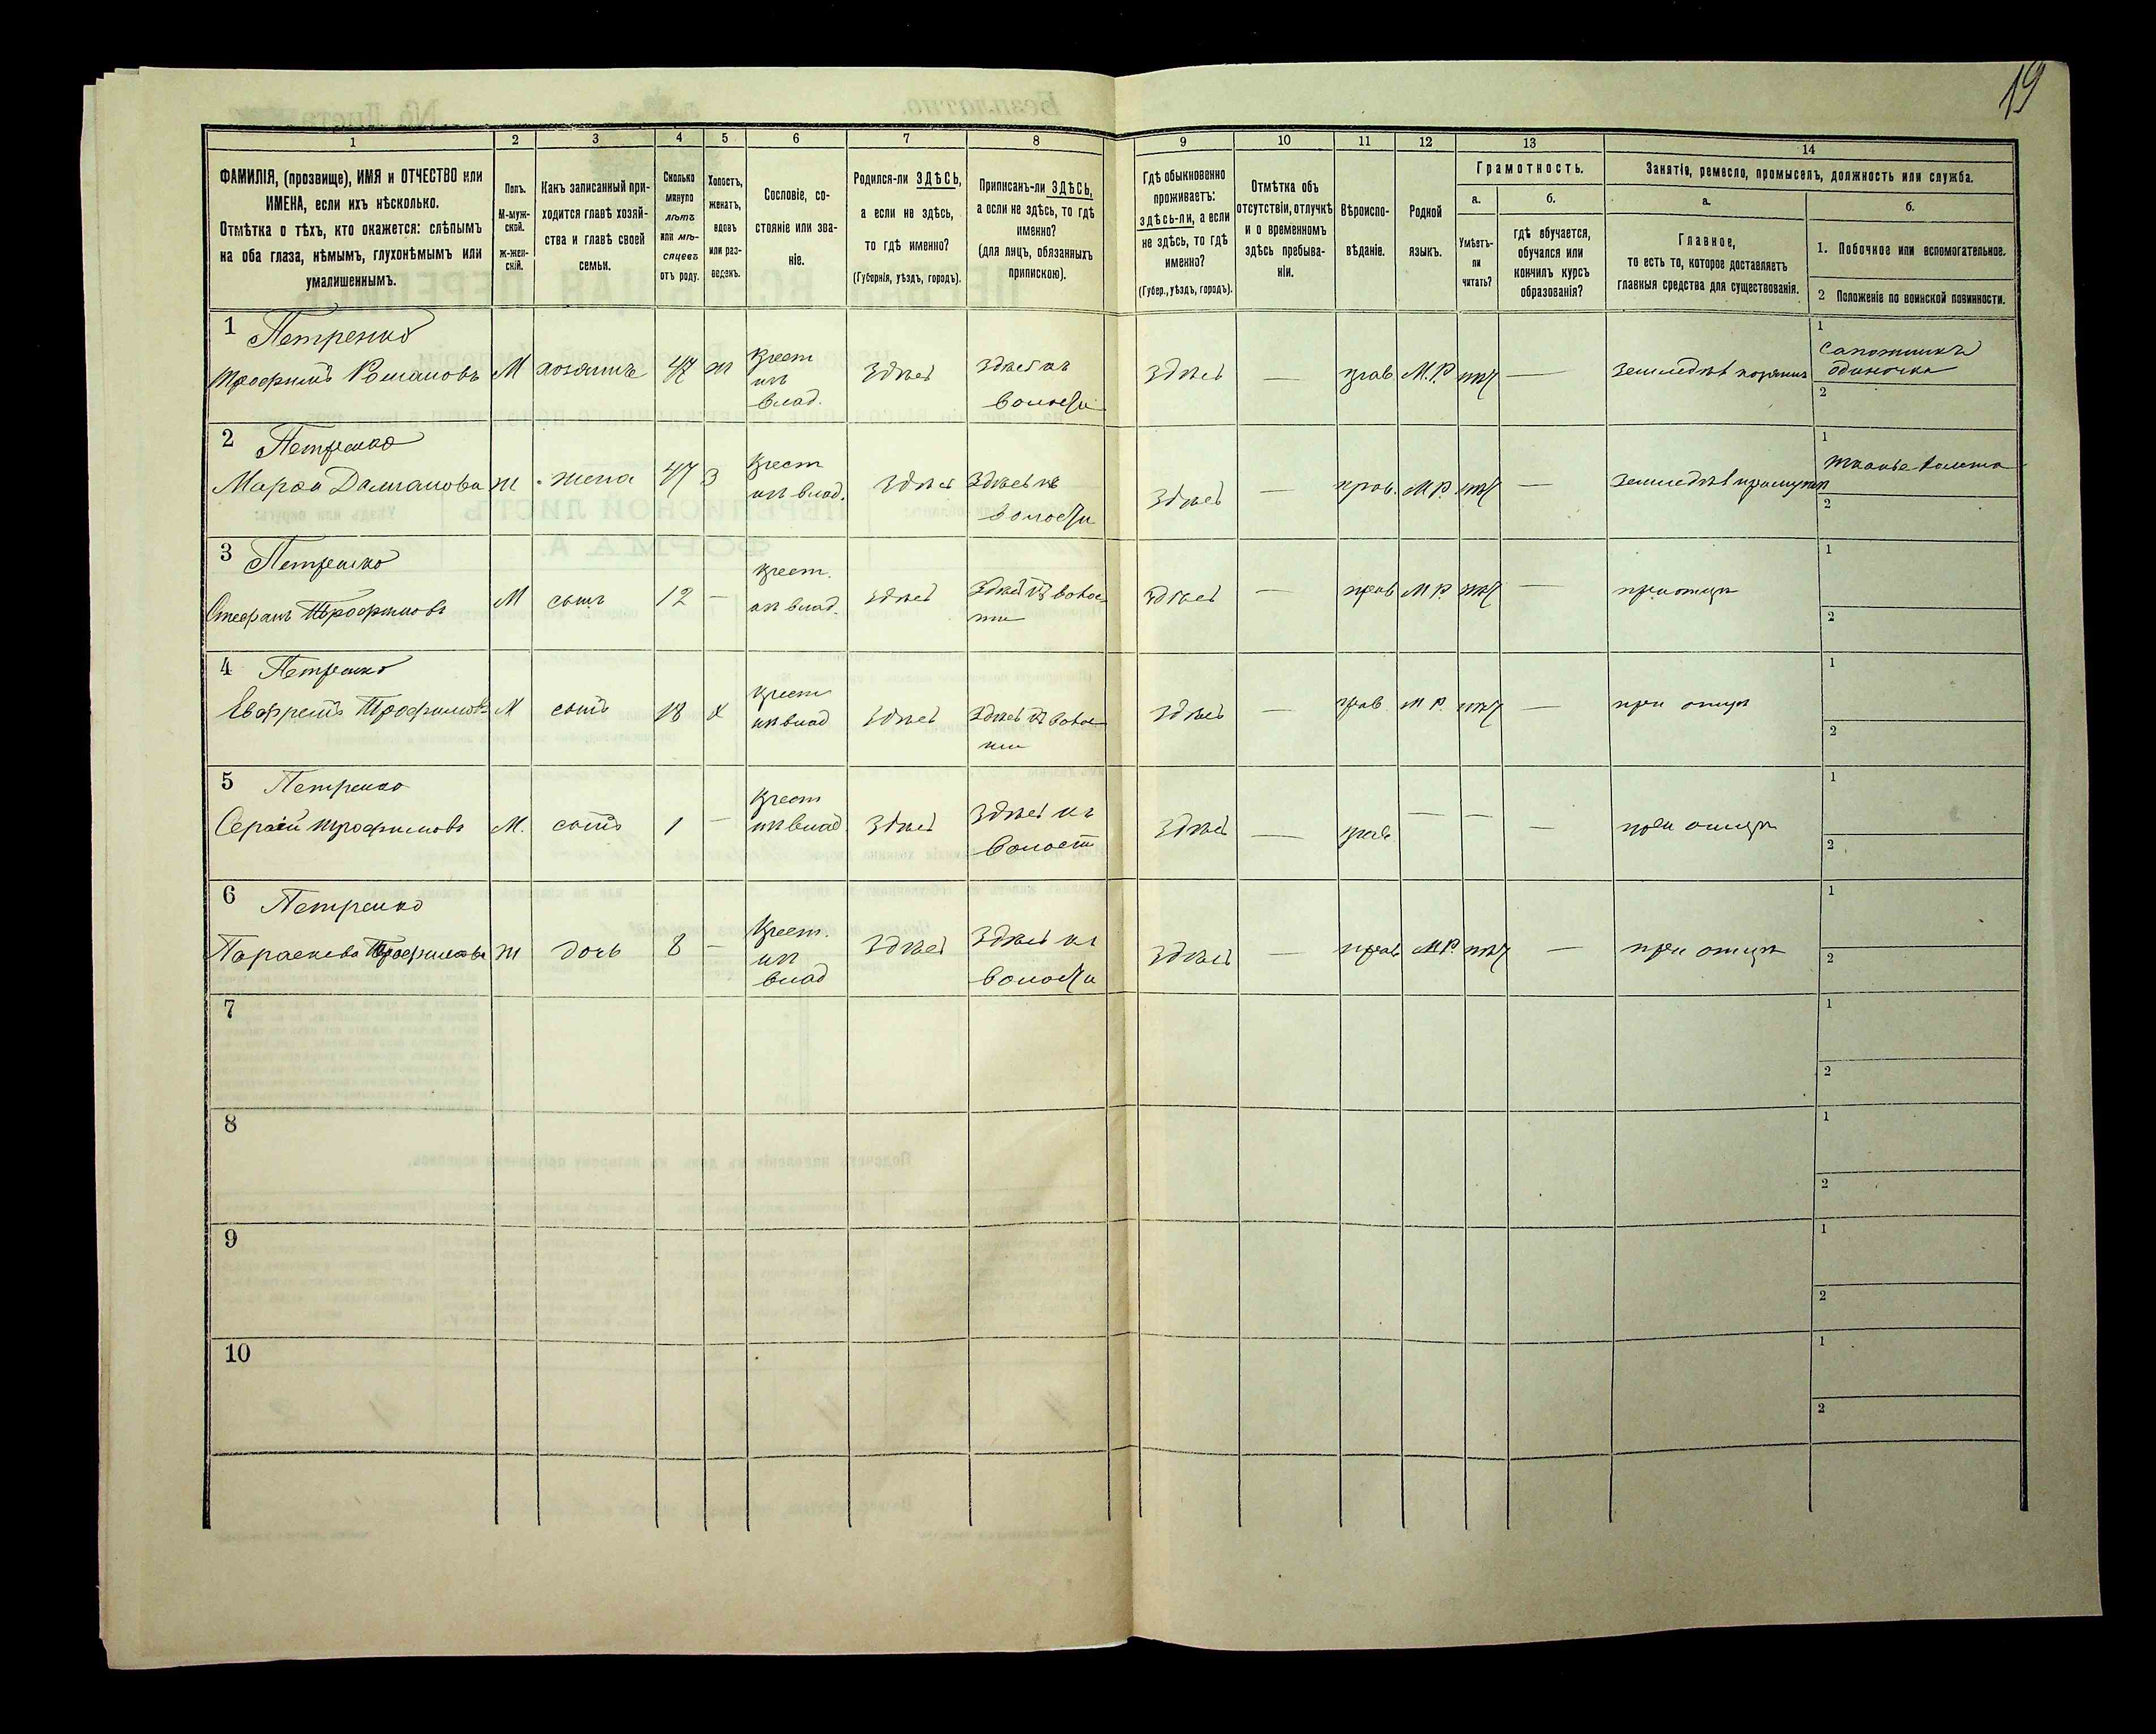 19
1
2
3
4
5
6
7
8
9
10
11
12
13
14
ФАМИЛІЯ, (прозвище), ИМЯ и ОТЧЕСТВО или
ИМЕНА, если ихъ нѣсколько.
Отмѣтка о тѣхъ, кто окажется: слѣпымъ
на оба глаза, нѣмымъ, глухонѣмымъ или
умалишеннымъ.
Полъ.
М-муж-
ской.
Ж-жен-
скій.
Какъ записанный при-
ходится главѣ хозяй-
ства и главѣ своей
семьи.
Сколько
минуло
лѣтъ
или мѣ-
сяцевъ
отъ роду.
Холостъ,
женатъ,
вдовъ
или раз-
веденъ.
Сословіе, со-
стояніе или зва-
ніе.
Родился-ли ЗДѢСЬ,
а если не здѣсь,
то гдѣ именно?
(Губернія, уѣздъ, городъ).
Приписанъ-ли ЗДѢСЬ,
а если не здѣсь, то гдѣ
именно?
(для лицъ, обязанныхъ
припискою).
Гдѣ обыкновенно
проживаетъ:
здѣсь-ли, а если
не здѣсь, то гдѣ
именно?
(Губер., уѣздъ, городъ).
Отмѣтка объ
отсутствіи, отлучкѣ
и о временномъ
здѣсь пребыва-
ніи.
Вѣроиспо-
вѣданіе.
Родной
языкъ.
Грамотность.
а.
Умѣетъ-
ли
читать?
б.
гдѣ обучается,
обучался или
кончилъ курсъ
образованія?
Занятіе, ремесло, промыселъ, должность или служба.
а.
Главное,
то есть то, которое доставляетъ
главныя средства для существованія.
б.
1. Побочное или вспомогательное.
2 Положеніе по воинской повинности.
1 Петренко
Трофимъ Романовъ М хозяинъ 47 ж
крест
изъ
влад.
здѣсь
здѣсь къ
волости
здѣсь — прав М.Р. нѣт — земледѣл хозяинъ
1
Сапожникъ
одиночка
2
2 Петренко
Марѳа ж жена 47 З
крест
изъ влад.
здѣсь
здѣсь къ
волости
здѣсь — прав. М.Р. нѣт — земледѣл
1
тканье холста
2
3 Петренко
Стефанъ Трофимовъ М сынъ 12 —
крест.
изъ влад.
здѣсь
здѣсь къ волос-
ти
здѣсь — прав М.Р. нѣт — при отцѣ
1
2
4 Петренко
Трофимовъ М сынъ 18 х
крест
изъ влад
здѣсь
здѣсь къ волос-
ти
здѣсь — прав. М Р. нѣт — при отцѣ
1
2
5 Петренко
Сергѣй Трофимовъ М. сынъ 1 —
крест
изъ влад.
здѣсь
здѣсь къ
волост
здѣсь — прав — — — при отцѣ
1
2
6 Петренко
Параскева Трофимова ж дочь 8 —
крест.
изъ
влад
здѣсь
здѣсь къ
волости
здѣсь — прав. М.Р. нѣт — при отцѣ
1
2
7
1
2
8
1
2
9
1
2
10
1
2